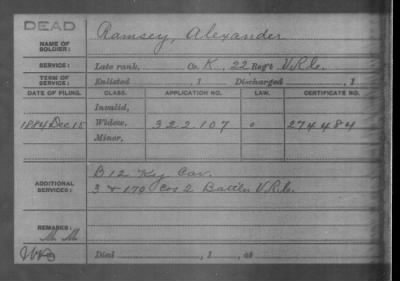 DEAD
NAME OF SOLDIER: Ramsey, Alexander
SERVICE: Late rank, Co. K, 22 Reg't V.R.C.
TERM OF SERVICE: Enlisted , 1 Discharged , 1
DATE OF FILING. CLASS. APPLICATION NO. LAW. CERTIFICATE NO.
Invalid,
1884 Dec 15 Widow, 322107 274484
Minor,
ADDITIONAL SERVICES: B 12 Ky Cav.
3 & 170 Cos 2 Battln V.R.C.
REMARKS:
Died , 1 , at